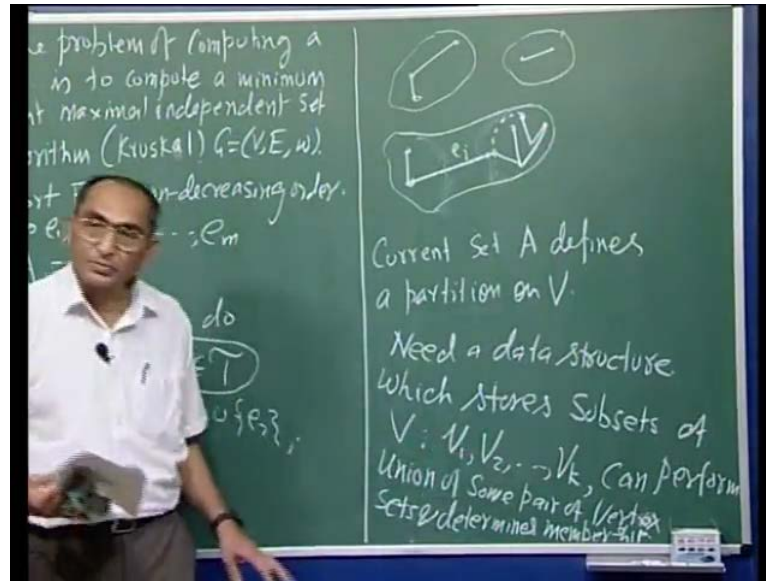 problem of Computing a
is to compute a minimum
maximal independent set
(Kruskal) G=(V,E,w).
non-decreasing order.
e_m
do
∈ T
∪{e_i};
e_i
Current set A defines
a partition on V.
Need a data structure
which stores subsets of
V: V_1, V_2, .., V_k, can perform
Union of some pair of vertex
sets & determines membership